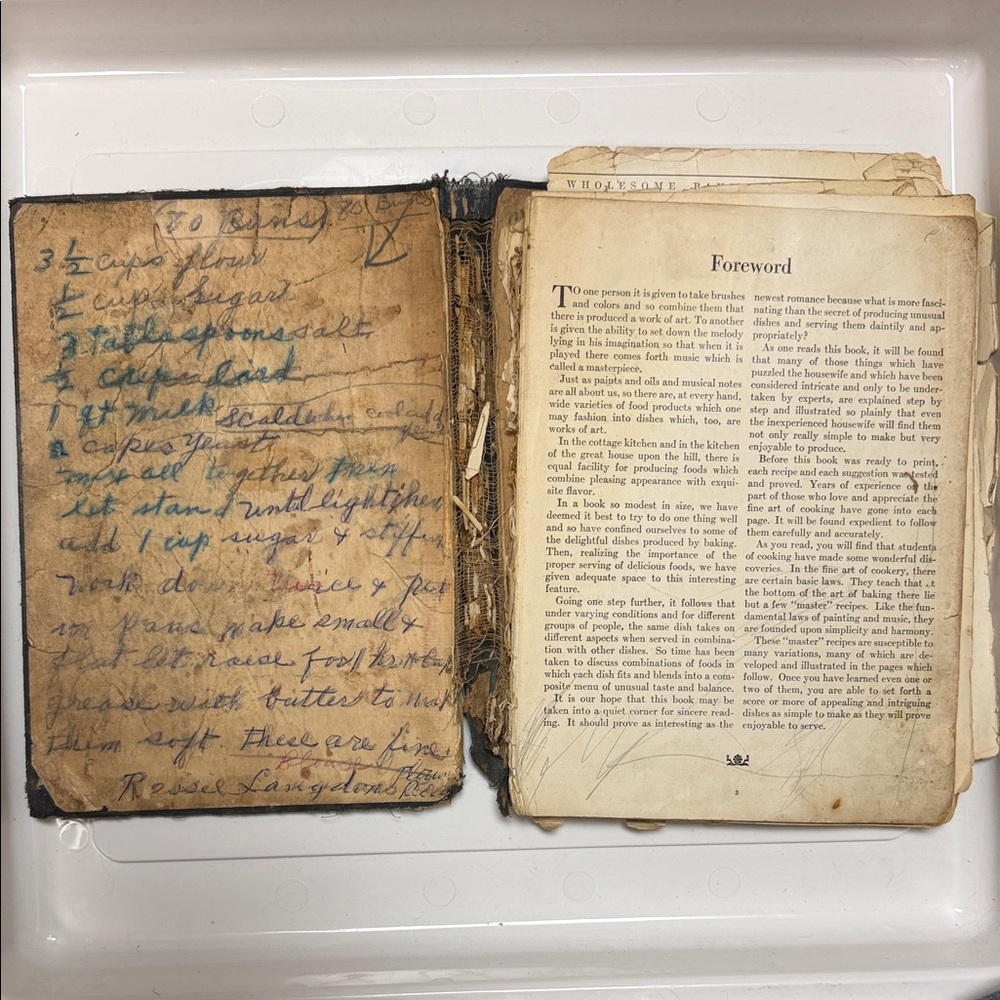 (80 Buns) 80 Buns
3 1/2 cups flour
1/2 cup sugar
3 tablespoons salt
1/2 cup lard
1 qt milk scald when cool add
yeast
2 capes yeast
mix all together then
let stand until light then
add 1 cup sugar & stiffen
work down twice & put
in pans make small &
flat let raise for
grease with butter to make
them soft. These are fine
Langdons
WHOLESOME
Foreword
TO one person it is given to take brushes
and colors and so combine them that
there is produced a work of art. To another
is given the ability to set down the melody
lying in his imagination so that when it is
played there comes forth music which is
called a masterpiece.
Just as paints and oils and musical notes
are all about us, so there are, at every hand,
wide varieties of food products which one
may fashion into dishes which, too, are
works of art.
In the cottage kitchen and in the kitchen
of the great house upon the hill, there is
equal facility for producing foods which
combine pleasing appearance with exqui-
site flavor.
In a book so modest in size, we have
deemed it best to try to do one thing well
and so have confined ourselves to some of
the delightful dishes produced by baking.
Then, realizing the importance of the
proper serving of delicious foods, we have
given adequate space to this interesting
feature.
Going one step further, it follows that
under varying conditions and for different
groups of people, the same dish takes on
different aspects when served in combina-
tion with other dishes. So time has been
taken to discuss combinations of foods in
which each dish fits and blends into a com-
posite menu of unusual taste and balance.
It is our hope that this book may be
taken into a quiet corner for sincere read-
ing. It should prove as interesting as the
newest romance because what is more fasci-
nating than the secret of producing unusual
dishes and serving them daintily and ap-
propriately?
As one reads this book, it will be found
that many of those things which have
puzzled the housewife and which have been
considered intricate and only to be under-
taken by experts, are explained step by
step and illustrated so plainly that even
the inexperienced housewife will find them
not only really simple to make but very
enjoyable to produce.
Before this book was ready to print,
each recipe and each suggestion was tested
and proved. Years of experience on the
part of those who love and appreciate the
fine art of cooking have gone into each
page. It will be found expedient to follow
them carefully and accurately.
As you read, you will find that students
of cooking have made some wonderful dis-
coveries. In the fine art of cookery, there
are certain basic laws. They teach that at
the bottom of the art of baking there lie
but a few "master" recipes. Like the fun-
damental laws of painting and music, they
are founded upon simplicity and harmony.
These "master" recipes are susceptible to
many variations, many of which are de-
veloped and illustrated in the pages which
follow. Once you have learned even one or
two of them, you are able to set forth a
score or more of appealing and intriguing
dishes as simple to make as they will prove
enjoyable to serve.
3